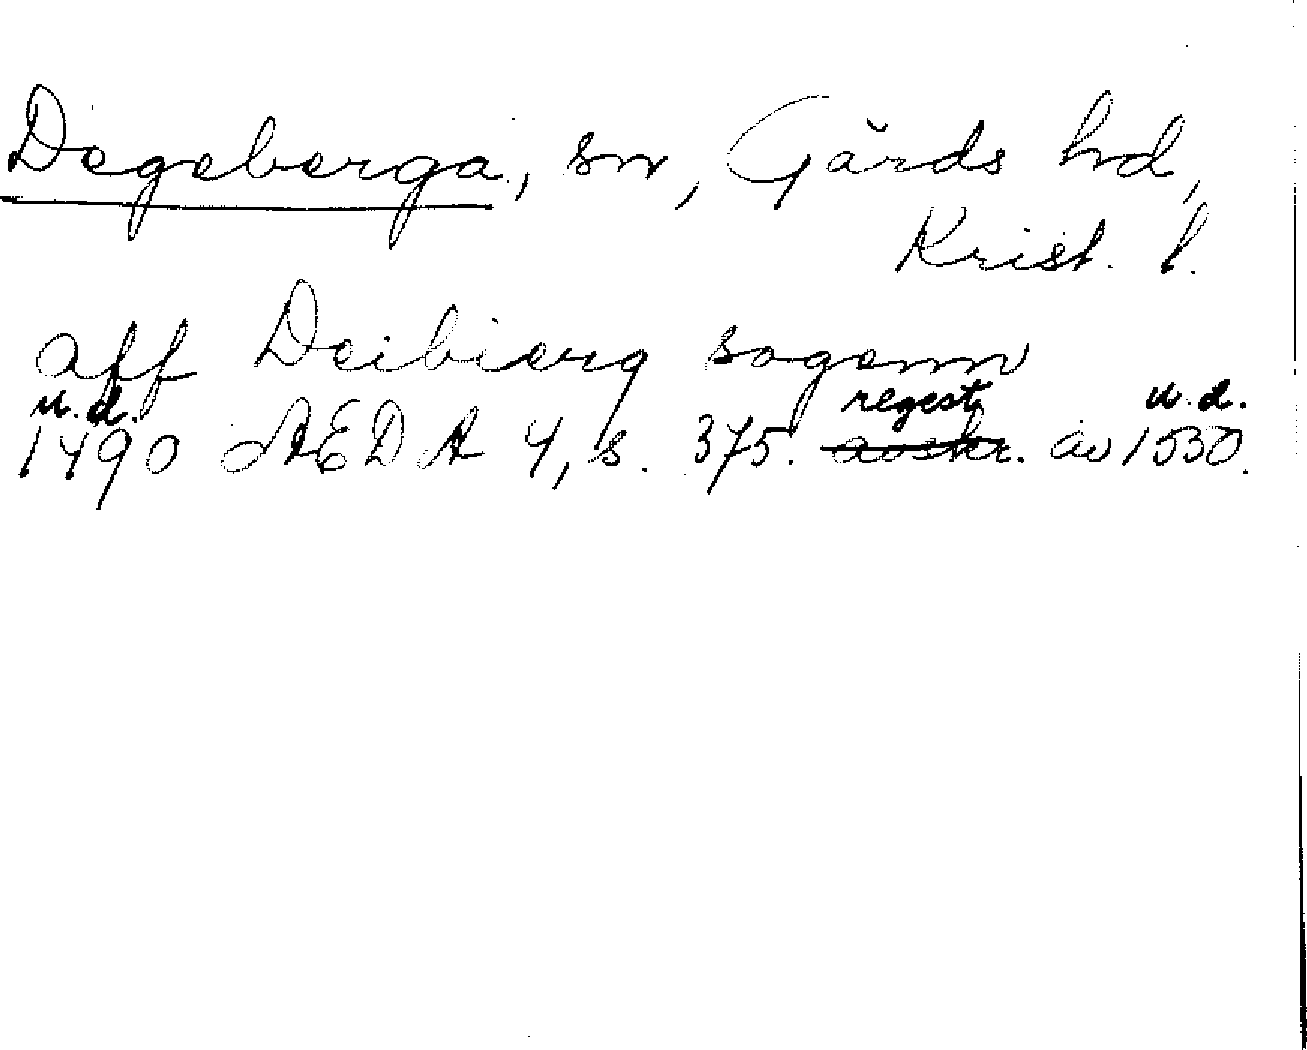 Degeberga, sn, Gärds hd,
Krist. l.
aff Deibierg sogenn
u.d. regest u.d.
1490 ÆDA 4, s. 375. avskr. av 1530.